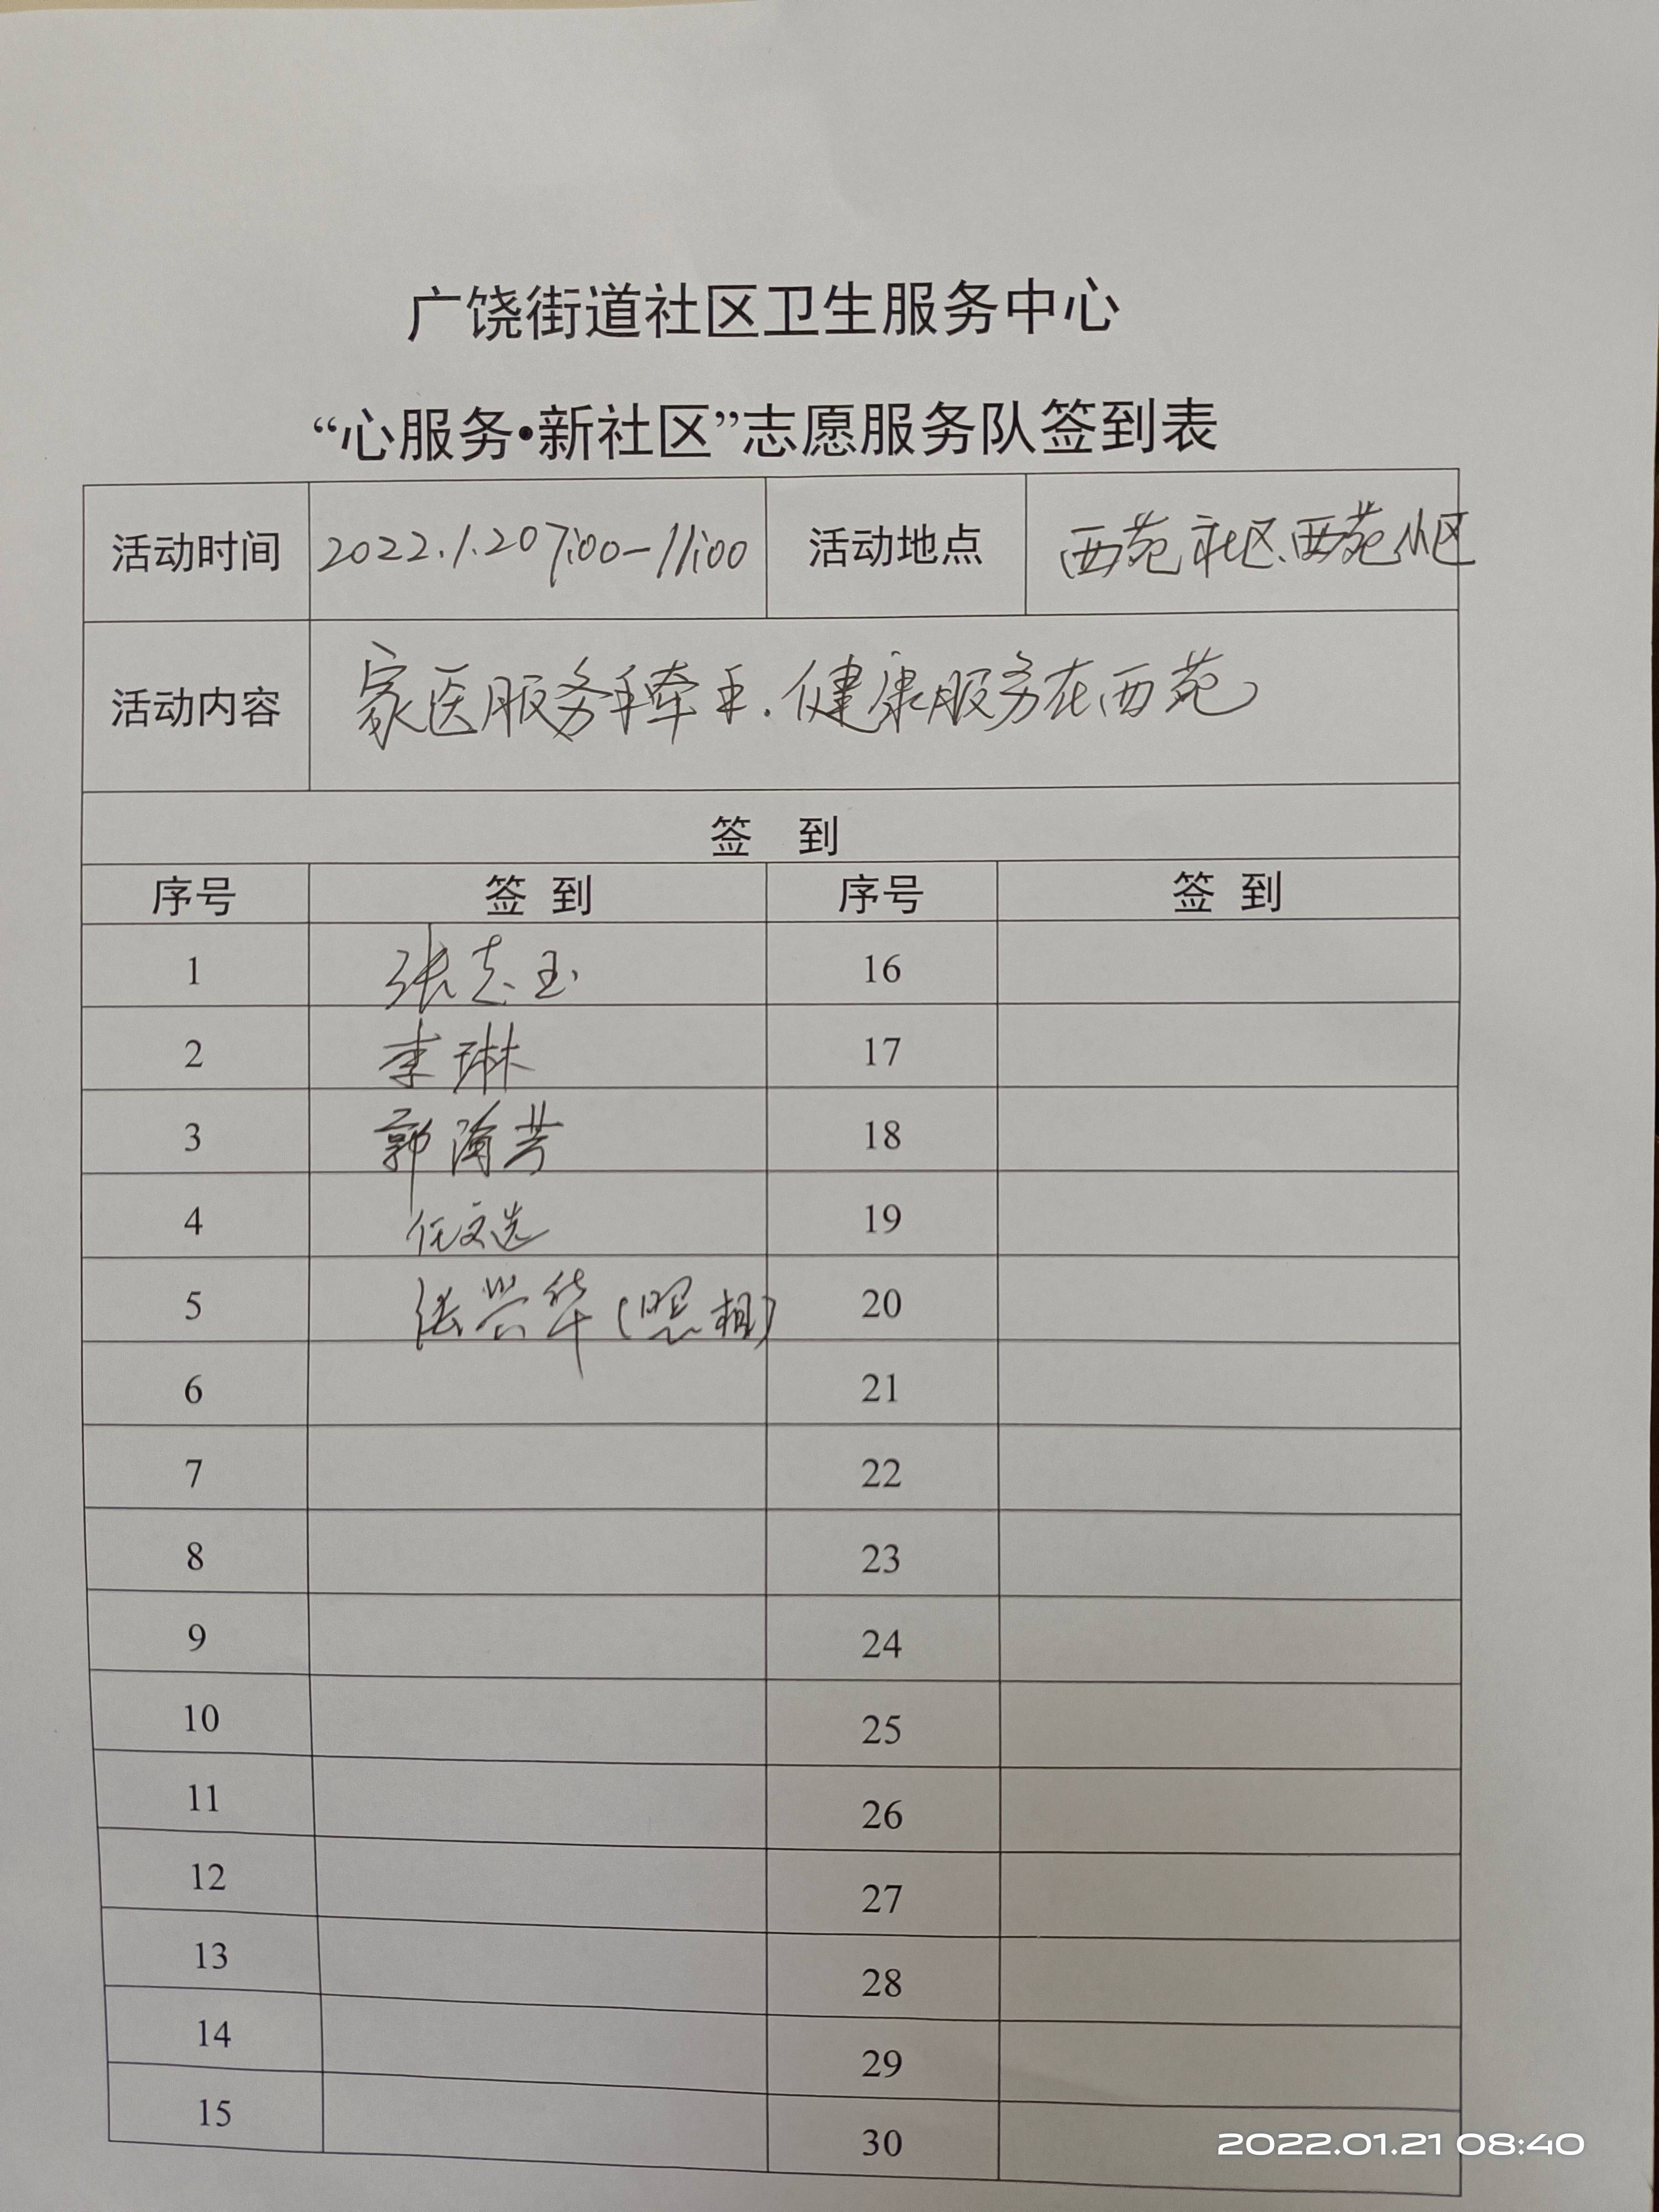 广饶街道社区卫生服务中心
“心服务•新社区”志愿服务队签到表
活动时间 2022.1.20 7:00-11:00 活动地点 西苑社区、西苑小区
活动内容 家医服务手牵手.健康服务在西苑
签 到
序号 签 到 序号 签 到
1 张志玉 16
2 李琳 17
3 郭 芳 18
4 任文选 19
5 张兴华(照相) 20
6 21
7 22
8 23
9 24
10 25
11 26
12 27
13 28
14 29
15 30
2022.01.21 08:40